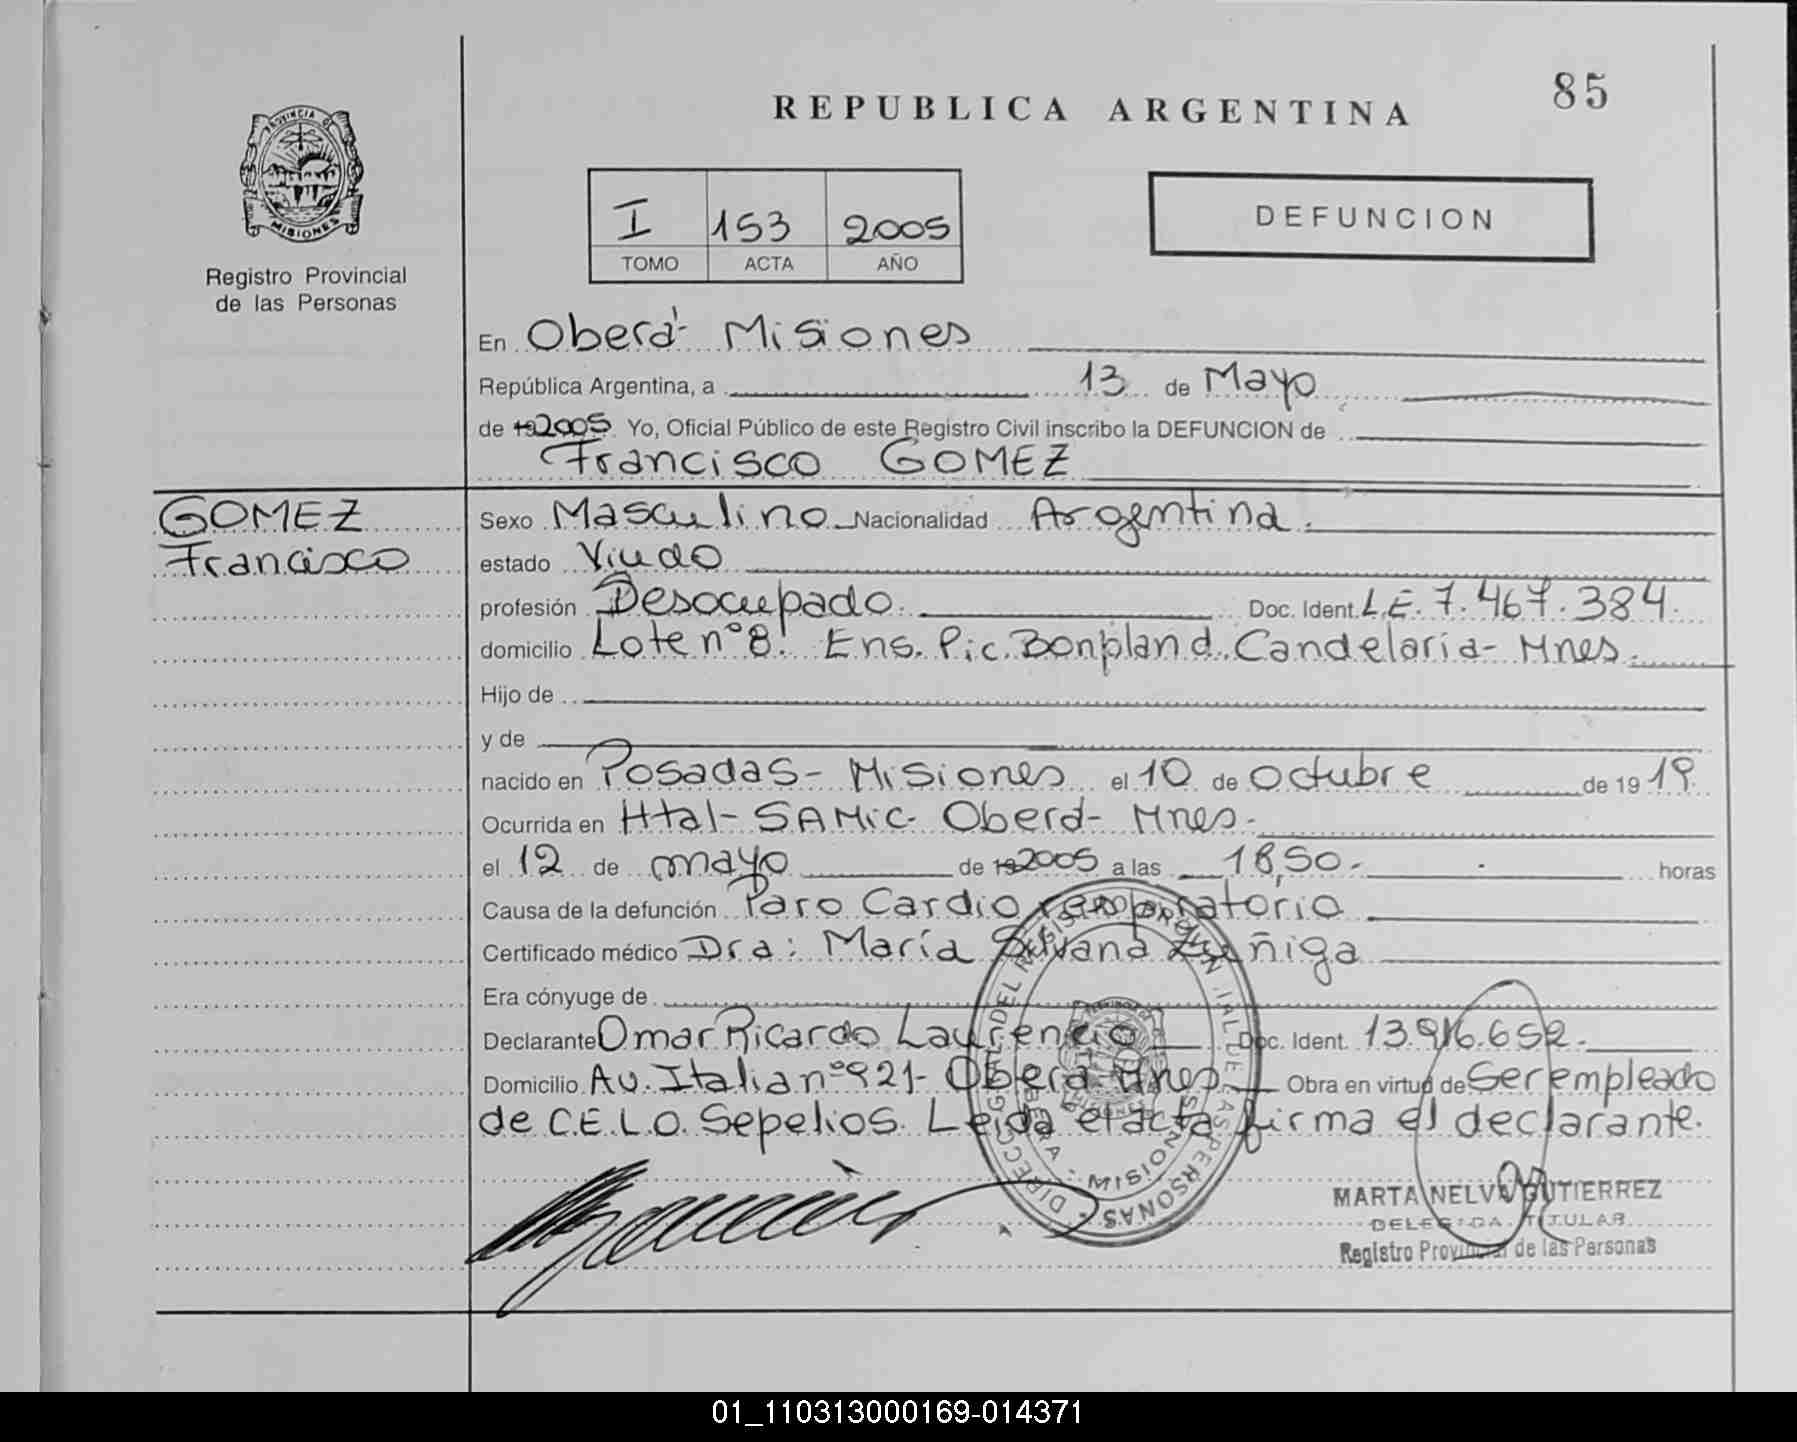 85
REPUBLICA ARGENTINA
PROVINCIA DE
MISIONES
Registro Provincial
de las Personas
I 153 2005
TOMO ACTA AÑO
DEFUNCION
En Oberá - Misiones
República Argentina, a 13 de Mayo
de 19 2005 Yo, Oficial Público de este Registro Civil inscribo la DEFUNCION de
Francisco GOMEZ
GOMEZ
Francisco
Sexo Masculino Nacionalidad Argentina.
estado Viudo
profesión Desocupado. Doc. Ident. L.E. 7.467.384.
domicilio Lote nº 8. Ens. Pic. Bonpland. Candelaria - Mnes.
Hijo de
y de
nacido en Posadas - Misiones el 10 de octubre de 1919.
Ocurrida en Htal - SAMic - Oberá - Mnes.
el 12 de mayo de 19 2005 a las 18,50.- horas
Causa de la defunción Paro Cardio respiratorio
Certificado médico Dra: María Silvana Zuñiga
Era cónyuge de
Declarante Omar Ricardo Laurencio Doc. Ident. 13.916.652.
Domicilio Av. Italia nº 921 - Oberá - Mnes Obra en virtud de Ser empleado
de C.E.L.O. Sepelios. Leida el acta firma el declarante.
MARTA NELVA GUTIERREZ
DELEGADA TITULAR
Registro Provincial de las Personas
01_110313000169-014371